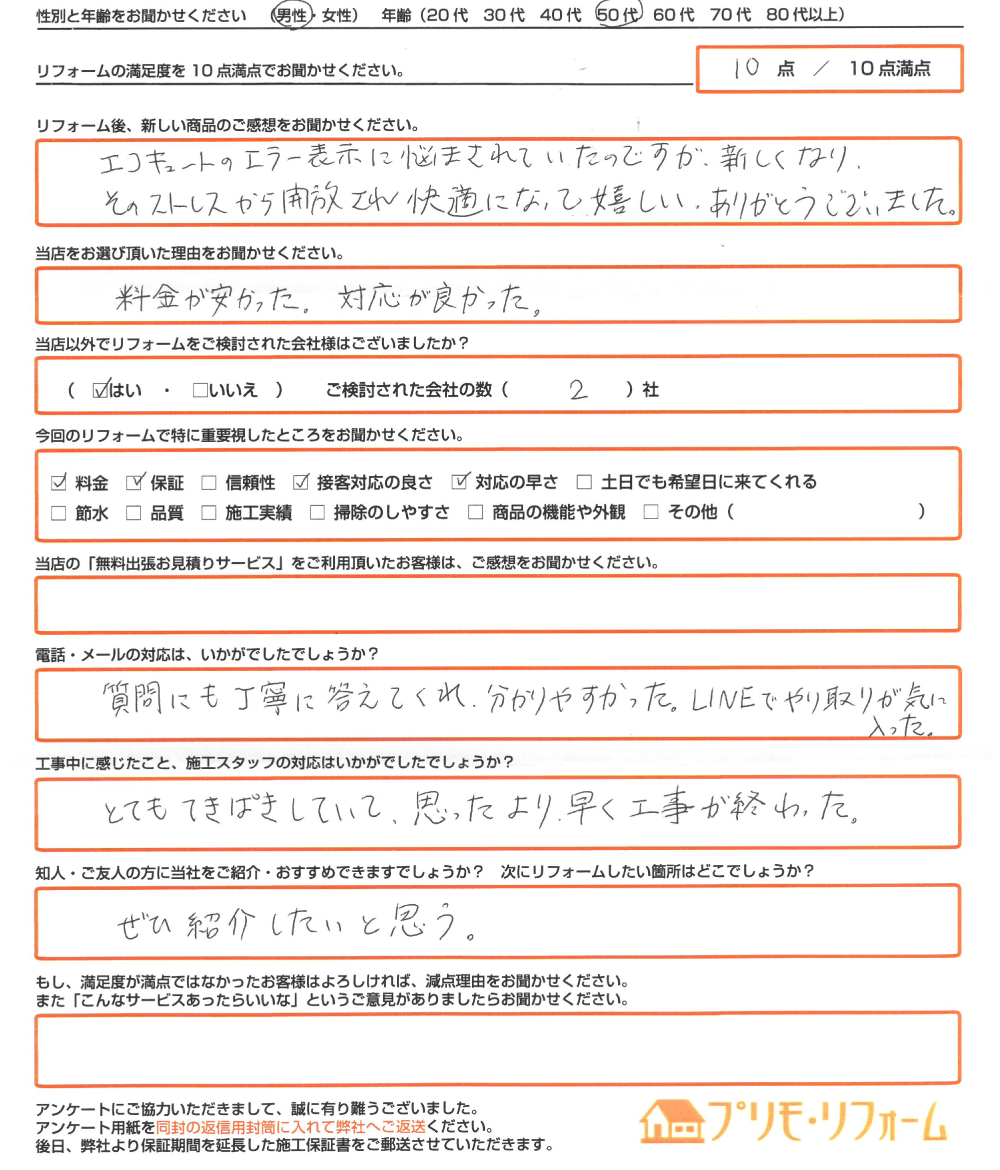 性別と年齢をお聞かせください （男性・女性） 年齢（20代 30代 40代 50代 60代 70代 80代以上）
リフォームの満足度を10点満点でお聞かせください。 10 点 / 10点満点
リフォーム後、新しい商品のご感想をお聞かせください。
エコキュートのエラー表示に悩まされていたのですが、新しくなり、
そのストレスから開放され快適になって嬉しい。ありがとうございました。
当店をお選び頂いた理由をお聞かせください。
料金が安かった。対応が良かった。
当店以外でリフォームをご検討された会社様はございましたか？
（ ☑はい ・ □いいえ ） ご検討された会社の数（ 2 ）社
今回のリフォームで特に重要視したところをお聞かせください。
☑ 料金 ☑ 保証 □ 信頼性 ☑ 接客対応の良さ ☑ 対応の早さ □ 土日でも希望日に来てくれる
□ 節水 □ 品質 □ 施工実績 □ 掃除のしやすさ □ 商品の機能や外観 □ その他（ ）
当店の「無料出張お見積りサービス」をご利用頂いたお客様は、ご感想をお聞かせください。
電話・メールの対応は、いかがでしたでしょうか？
質問にも丁寧に答えてくれ、分かりやすかった。LINEでやり取りが気に
入った。
工事中に感じたこと、施工スタッフの対応はいかがでしたでしょうか？
とてもてきぱきしていて、思ったより早く工事が終わった。
知人・ご友人の方に当社をご紹介・おすすめできますでしょうか？ 次にリフォームしたい箇所はどこでしょうか？
ぜひ紹介したいと思う。
もし、満足度が満点ではなかったお客様はよろしければ、減点理由をお聞かせください。
また「こんなサービスあったらいいな」というご意見がありましたらお聞かせください。
アンケートにご協力いただきまして、誠に有り難うございました。
アンケート用紙を同封の返信用封筒に入れて弊社へご返送ください。
後日、弊社より保証期間を延長した施工保証書をご郵送させていただきます。
プリモ・リフォーム